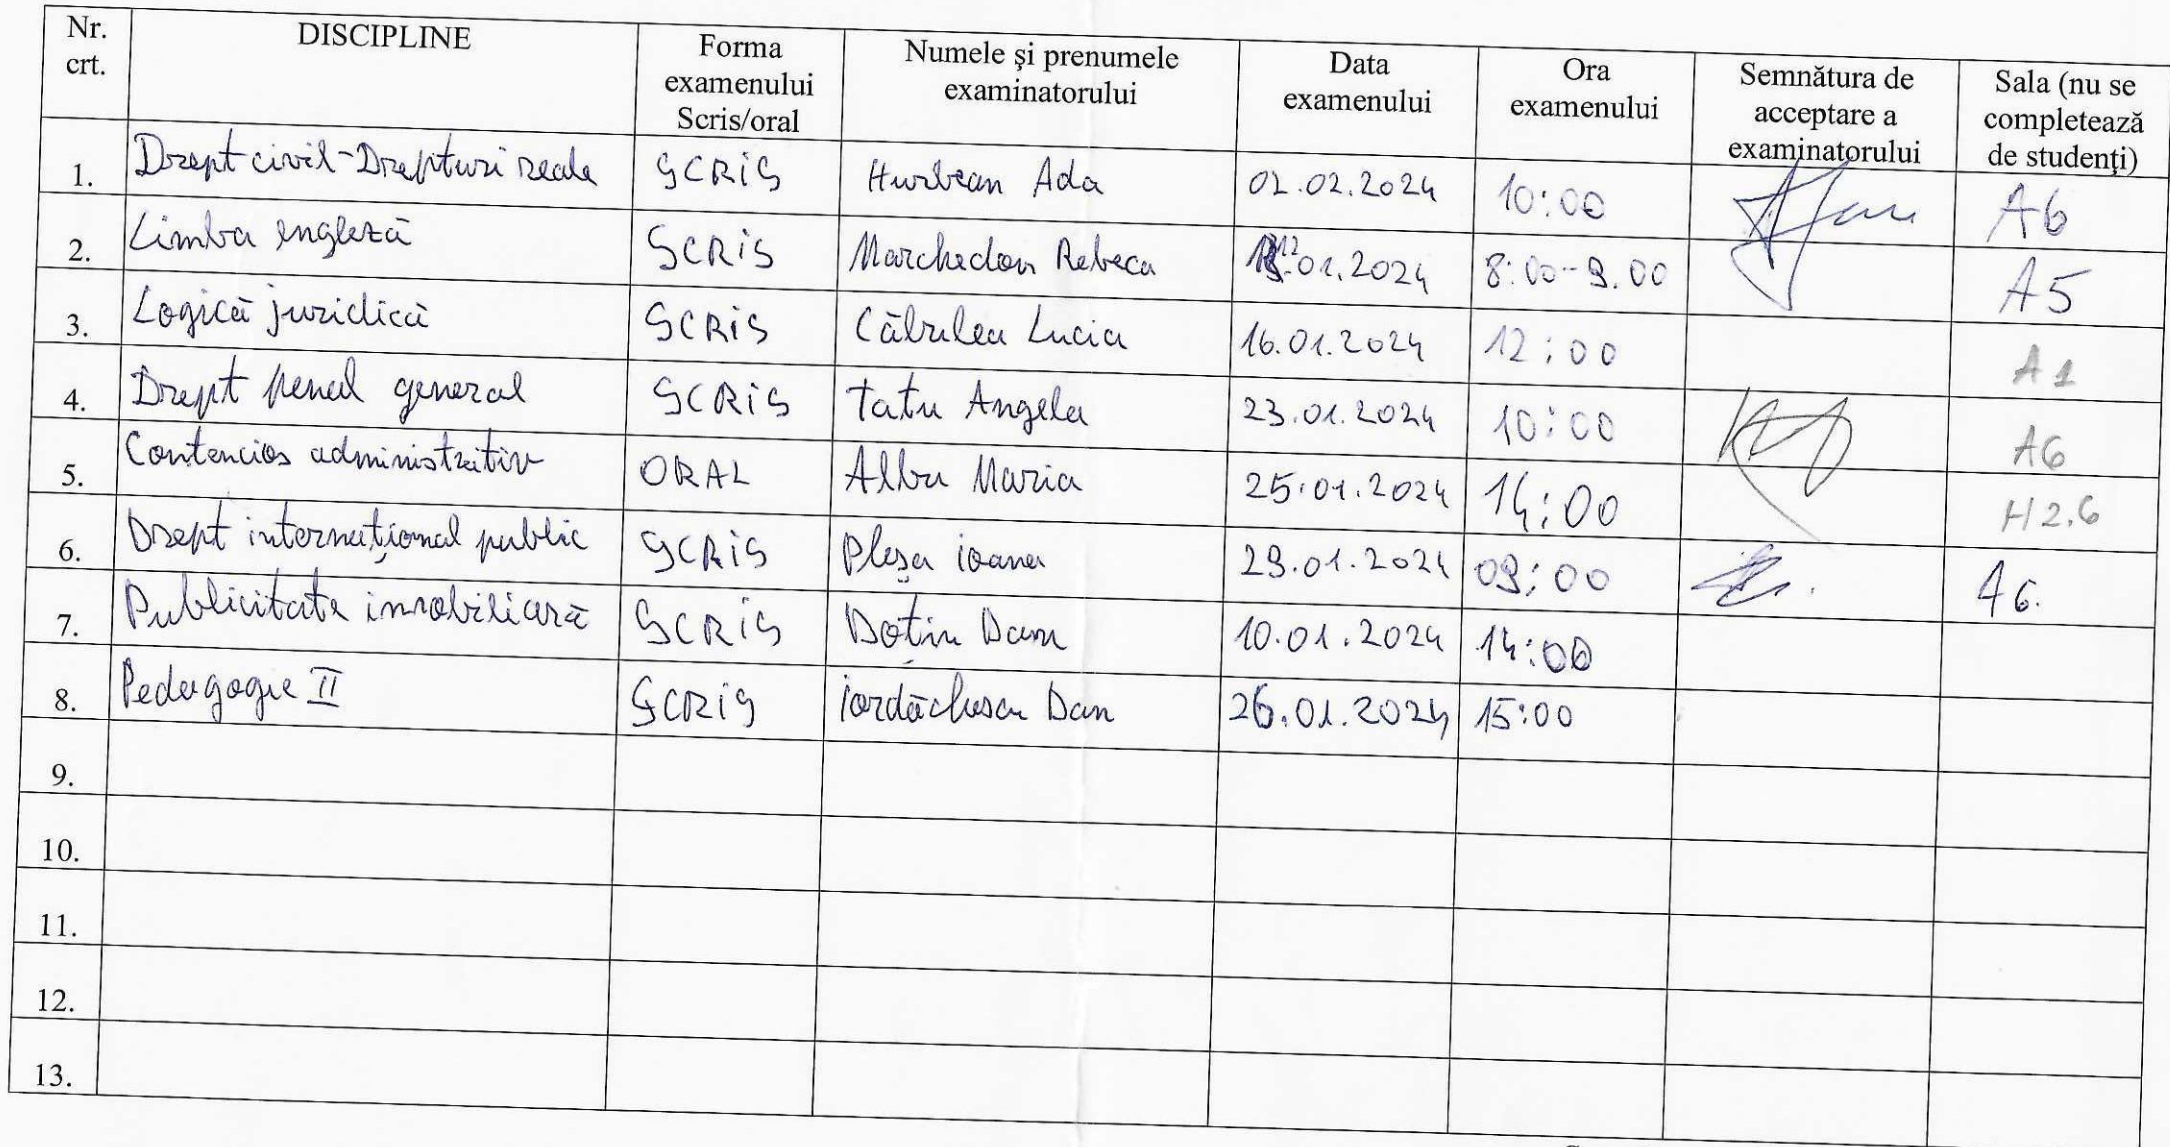 Nr. crt. DISCIPLINE Forma examenului Scris/oral Numele şi prenumele examinatorului Data examenului Ora examenului Semnătura de acceptare a examinatorului Sala (nu se completează de studenţi)
1. Drept civil-Drepturi reale SCRIS Hurbean Ada 02.02.2024 10:00 A6
2. Limba engleză SCRIS Marchedon Rebeca 12.01.2024 8:00-9.00 A5
3. Logică juridică SCRIS Căbulea Lucia 16.01.2024 12:00 A1
4. Drept penal general SCRIS Tatu Angela 23.01.2024 10:00 A6
5. Contencios administrativ ORAL Albu Maria 25.01.2024 14:00 H2.6
6. Drept internațional public SCRIS Pleșa ioana 29.01.2024 09:00 A6.
7. Publicitate imobiliară SCRIS Dan 10.01.2024 14:00
8. Pedagogie II SCRIS iordăchescu Dan 26.01.2024 15:00
9.
10.
11.
12.
13.